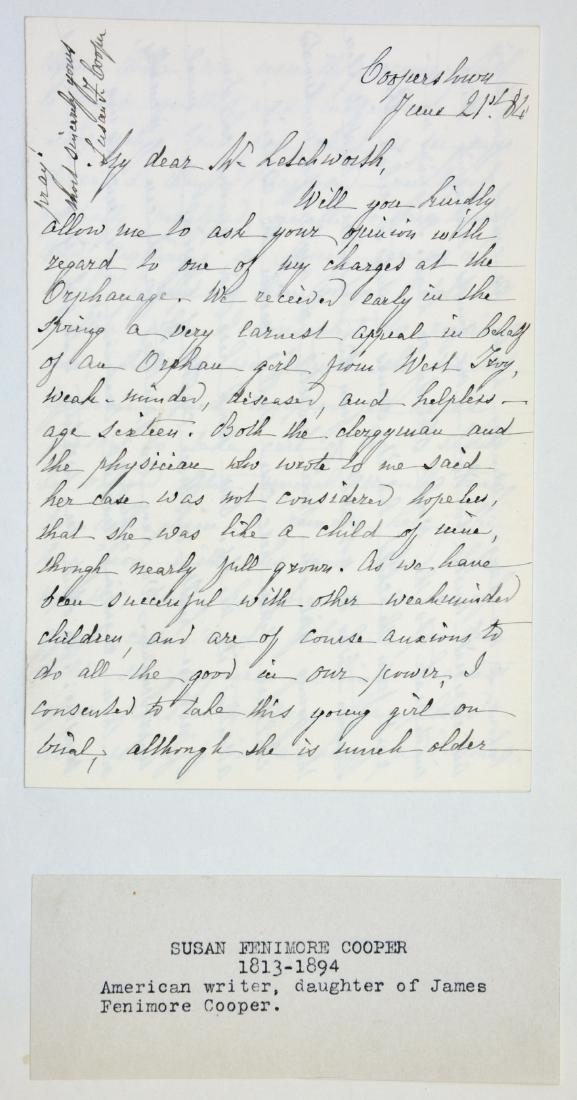 Cooperstown
June 21st. 84
My dear Mr Letchworth,
Will you kindly
allow me to ask your opinion with
regard to one of my charges at the
Orphanage. We received early in the
Spring a very earnest appeal in behalf
of an Orphan girl from West Troy,
weak-minded, diseased, and helpless -
age sixteen. Both the clergyman and
the physician who wrote to me said
her case was not considered hopeless,
that she was like a child of nine,
though nearly full grown. As we have
been successful with other weakminded
children, and are of course anxious to
do all the good in our power, I
consented to take this young girl on
trial, although she is much older
pray.
Most sincerely yours
Susan F. Cooper
SUSAN FENIMORE COOPER
1813-1894
American writer, daughter of James
Fenimore Cooper.